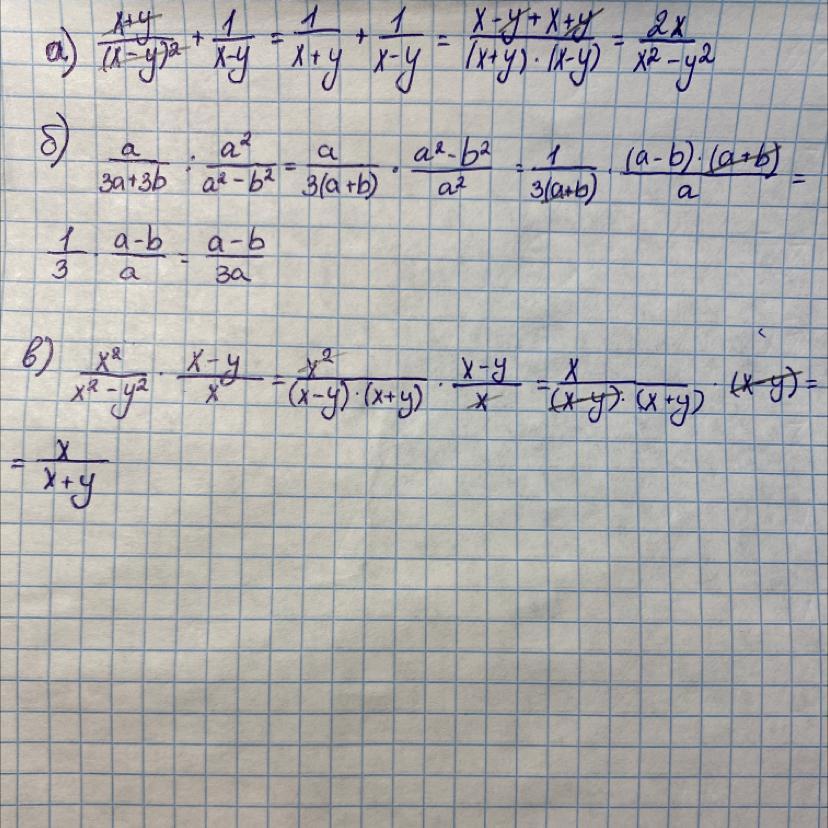 а) (x+y)/(x-y)² + 1/(x-y) = 1/(x+y) + 1/(x-y) = (x-y+x+y)/((x+y)·(x-y)) = 2x/(x²-y²)
б) a/(3a+3b) : a²/(a²-b²) = a/(3(a+b)) · (a²-b²)/a² = 1/(3(a+b)) · ((a-b)·(a+b))/a =
1/3 · (a-b)/a = (a-b)/(3a)
в) x²/(x²-y²) · (x-y)/x = x²/((x-y)·(x+y)) · (x-y)/x = x/((x-y)·(x+y)) · (x-y) =
= x/(x+y)